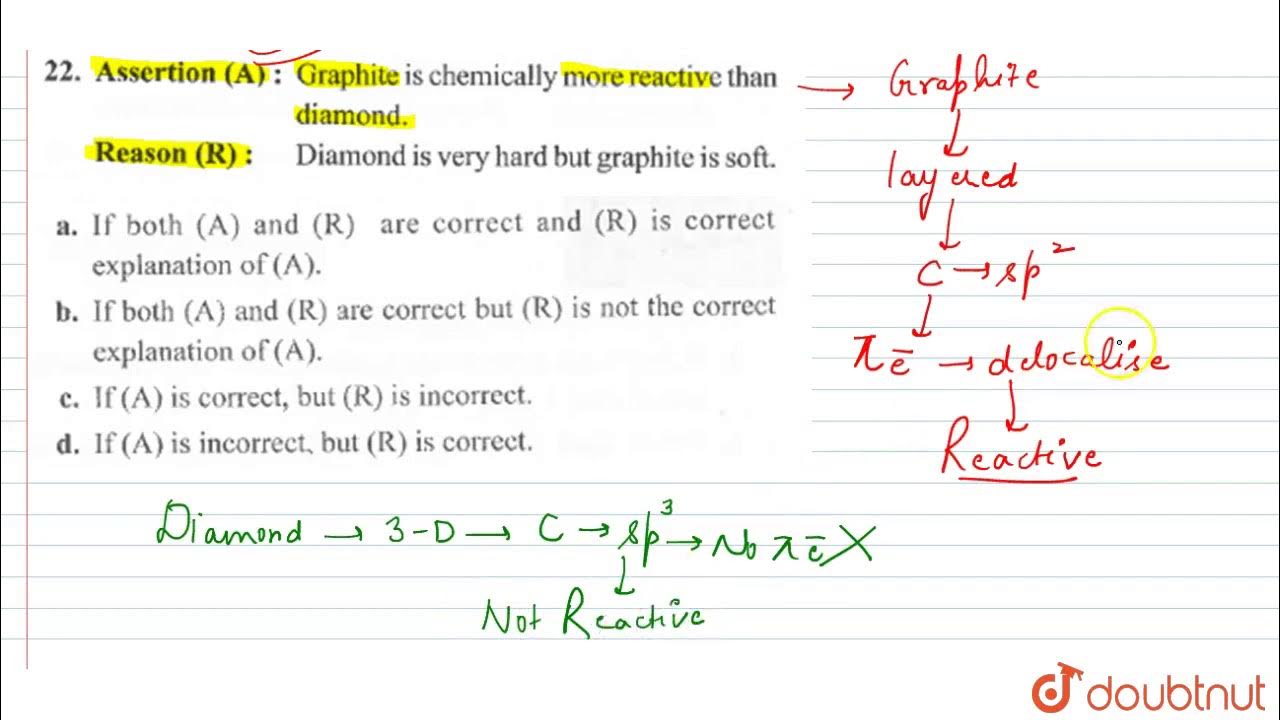 22. Assertion (A) : Graphite is chemically more reactive than
diamond.
Reason (R) : Diamond is very hard but graphite is soft.
a. If both (A) and (R) are correct and (R) is correct
explanation of (A).
b. If both (A) and (R) are correct but (R) is not the correct
explanation of (A).
c. If (A) is correct, but (R) is incorrect.
d. If (A) is incorrect, but (R) is correct.
→ Graphite
↓
layered
↓
C → sp²
↓
π ē → delocalise
↓
Reactive
Diamond → 3-D → C → sp³ → No π ē X
↓
Not Reactive
doubtnut